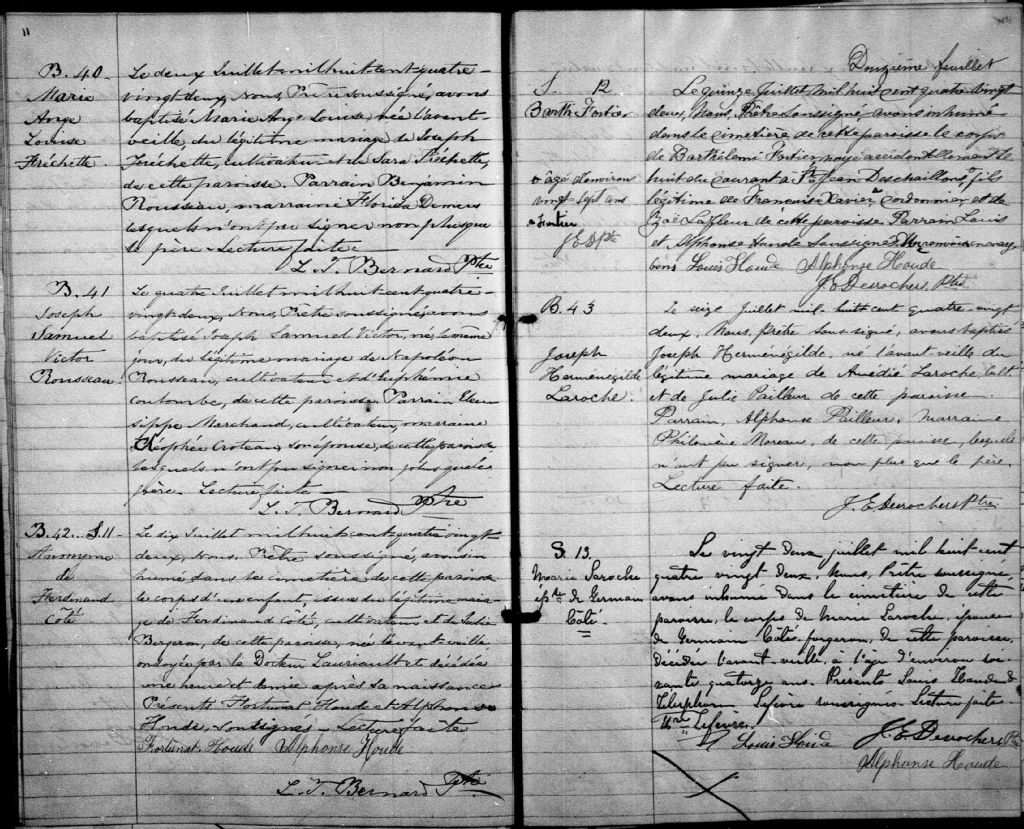 11
B. 40
Marie
Ange
Louise
Fréchette
Le deux Juillet mil huit cent quatre-
vingt deux, Nous, Prêtre soussigné, avons
baptisé Marie Ange Louise, née l'avant
veille, du légitime mariage de Joseph
Fréchette, cultivateur et de Sara
de cette paroisse. Parrain Benjamin
Rousseau, marraine Florida Demers
lesquels n'ont pu signer non plus que
le père. Lecture faite.
L. T. Bernard Ptre
B. 41
Joseph
Samuel
Victor
Rousseau
Le quatre Juillet mil huit cent quatre-
vingt deux, Nous, Prêtre soussigné, avons
baptisé Joseph Samuel Victor, né le même
jour, du légitime mariage de Napoléon
Rousseau, cultivateur et d'Euphémie
Coulombe, de cette paroisse. Parrain Eleu
sippe Marchand, cultivateur, marraine
Cléophée Croteau son épouse, de cette paroisse
lesquels n'ont pu signer non plus que le
père. Lecture faite.
L. T. Bernard Ptre
B. 42... S. 11
Anonyme
de
Ferdinand
Côté
Le six Juillet mil huit cent quatre vingt
deux, Nous, Prêtre soussigné, avons in
humé dans le cimetière de cette paroisse
le corps d'un enfant, issu du légitime maria-
ge de Ferdinand Côté, cultivateur et de Julie
Bergeron, de cette paroisse, né l'avant veille
ondoyé par le Docteur Lauriault et décédé
une heure et demie après sa naissance
Présents Fortunat Houde et Alphonse
Houde, soussignés. Lecture faite
Fortunat Houde Alphonse Houde
L. T. Bernard Ptre
Douzième feuillet
S. 12
Barth. Fortier
+ âgé d'environ
vingt sept ans
+ Fortier
J E D Ptre
Le quinze Juillet mil huit cent quatre vingt
deux, Nous, Prêtre soussigné avons inhumé
dans le cimetière de cette paroisse le corps
de Barthélemi Fortier, noyé accidentellement le
huit du courant à St Jean Deschaillons, fils
légitime de François Xavier cordonnier et de
Zoë Lafleur de cette paroisse. Parrain Louis
et Alphonse Houde Soussignés.
bons Louis Houde Alphonse Houde
J. E Desrochers, Ptre
B. 43
Joseph
Herménégilde
Laroche.
Le seize Juillet mil huit cent quatre vingt
deux, Nous, prêtre soussigné, avons baptisé
Joseph Herménégilde, né l'avant-veille du
légitime mariage de Amédée Laroche Cult.
et de Julie Pailleur de cette paroisse.
Parrain, Alphonse Pailleur, Marraine
Philomène Moreau, de cette paroisse, lesquels
n'ont pu signer, non plus que le père.
Lecture faite.
J. E Desrochers Ptre
S. 13.
Marie Laroche
épse de Germain
Côté.
Le vingt deux juillet mil huit cent
quatre vingt deux, Nous, Prêtre soussigné,
avons inhumé dans le cimetière de cette
paroisse, le corps de Marie Laroche, épouse
de Germain Côté, forgeron, de cette paroisse,
décédée l'avant veille, à l'âge d'environ soi-
xante quatorze ans. Présents Louis Houde &
Télesphore Lefèvre soussignés. Lecture faite.
Lefèvre
Louis Houde J. E Desrochers Ptre
Alphonse Houde